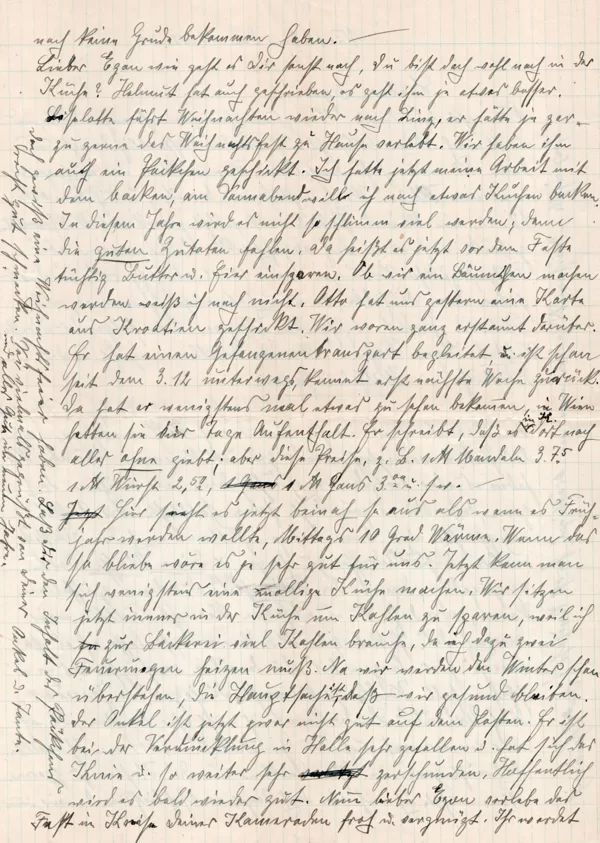 noch keine Grude bekommen haben. —
Lieber Egon wie geht es Dir sonst noch, Du bist doch wohl noch in der
Küche? Helmut hat auch geschrieben, es geht ihm ja etwas besser.
Liselotte fährt Weihnachten wieder nach Linz, er hätte ja gar-
zu gerne das Weihnachtsfest zu Hause verlebt. Wir haben ihm
auch ein Päckchen geschickt. Ich hatte jetzt meine Arbeit mit
dem backen, am Sonnabend will ich noch etwas Kuchen backen.
In diesem Jahre wird es nicht so schlimm viel werden, denn
die guten Zutaten fehlen. Da heißt es jetzt vor dem Feste
tüchtig Butter u. Eier einsparen. Ob wir ein Bäumchen machen
werden weiß ich noch nicht. Otto hat uns gestern eine Karte
aus Kroatien geschickt. Wir waren ganz erstaunt darüber.
Er hat einen Gefangenentransport begleitet u. ist schon
seit dem 3.12 unterwegs, kommt erst nächste Woche zurück.
Da hat er wenigstens mal etwas zu sehen bekommen, in Wien
hatten sie vier Tage Aufenthalt. Er schreibt, daß es dort noch
alles ohne giebt: aber diese Preise, z. B. 1 M Mandeln 3.75
1 M Wurst 2,50, 1 M Gans 3.00 u. s. w. —
Hier sieht es jetzt beinah so aus als wenn es Früh-
jahr werden wollte, Mittags 10 Grad Wärme. Wenn das
so bliebe wäre es ja sehr gut für uns. Jetzt kann man
sich wenigstens eine mollige Küche machen. Wir sitzen
jetzt immer in der Küche um Kohlen zu sparen, weil ich
zur Bäckerei viel Kohlen brauche, da ich dazu zwei
Feuerungen heizen muß. Na wir werden den Winter schon
überstehen, die Hauptsache ist daß wir gesund bleiben.
Der Onkel ist jetzt zwar nicht gut auf dem Posten. Er ist
bei der Verdunklung in Halle sehr gefallen u. hat sich das
Knie u. so weiter sehr zerschunden, Hoffentlich
wird es bald wieder gut. Nun lieber Egon verlebe das
Fest im Kreise deiner Kameraden froh u. vergnügt. Ihr werdet
doch gewiß eine Weihnachtsfeier haben. Laß Dir den Inhalt des Päckchens
recht gut schmecken. Sei vielmals gegrüßt von Deiner Onkel u. Tante.
und alles Gute im neuen Jahre.